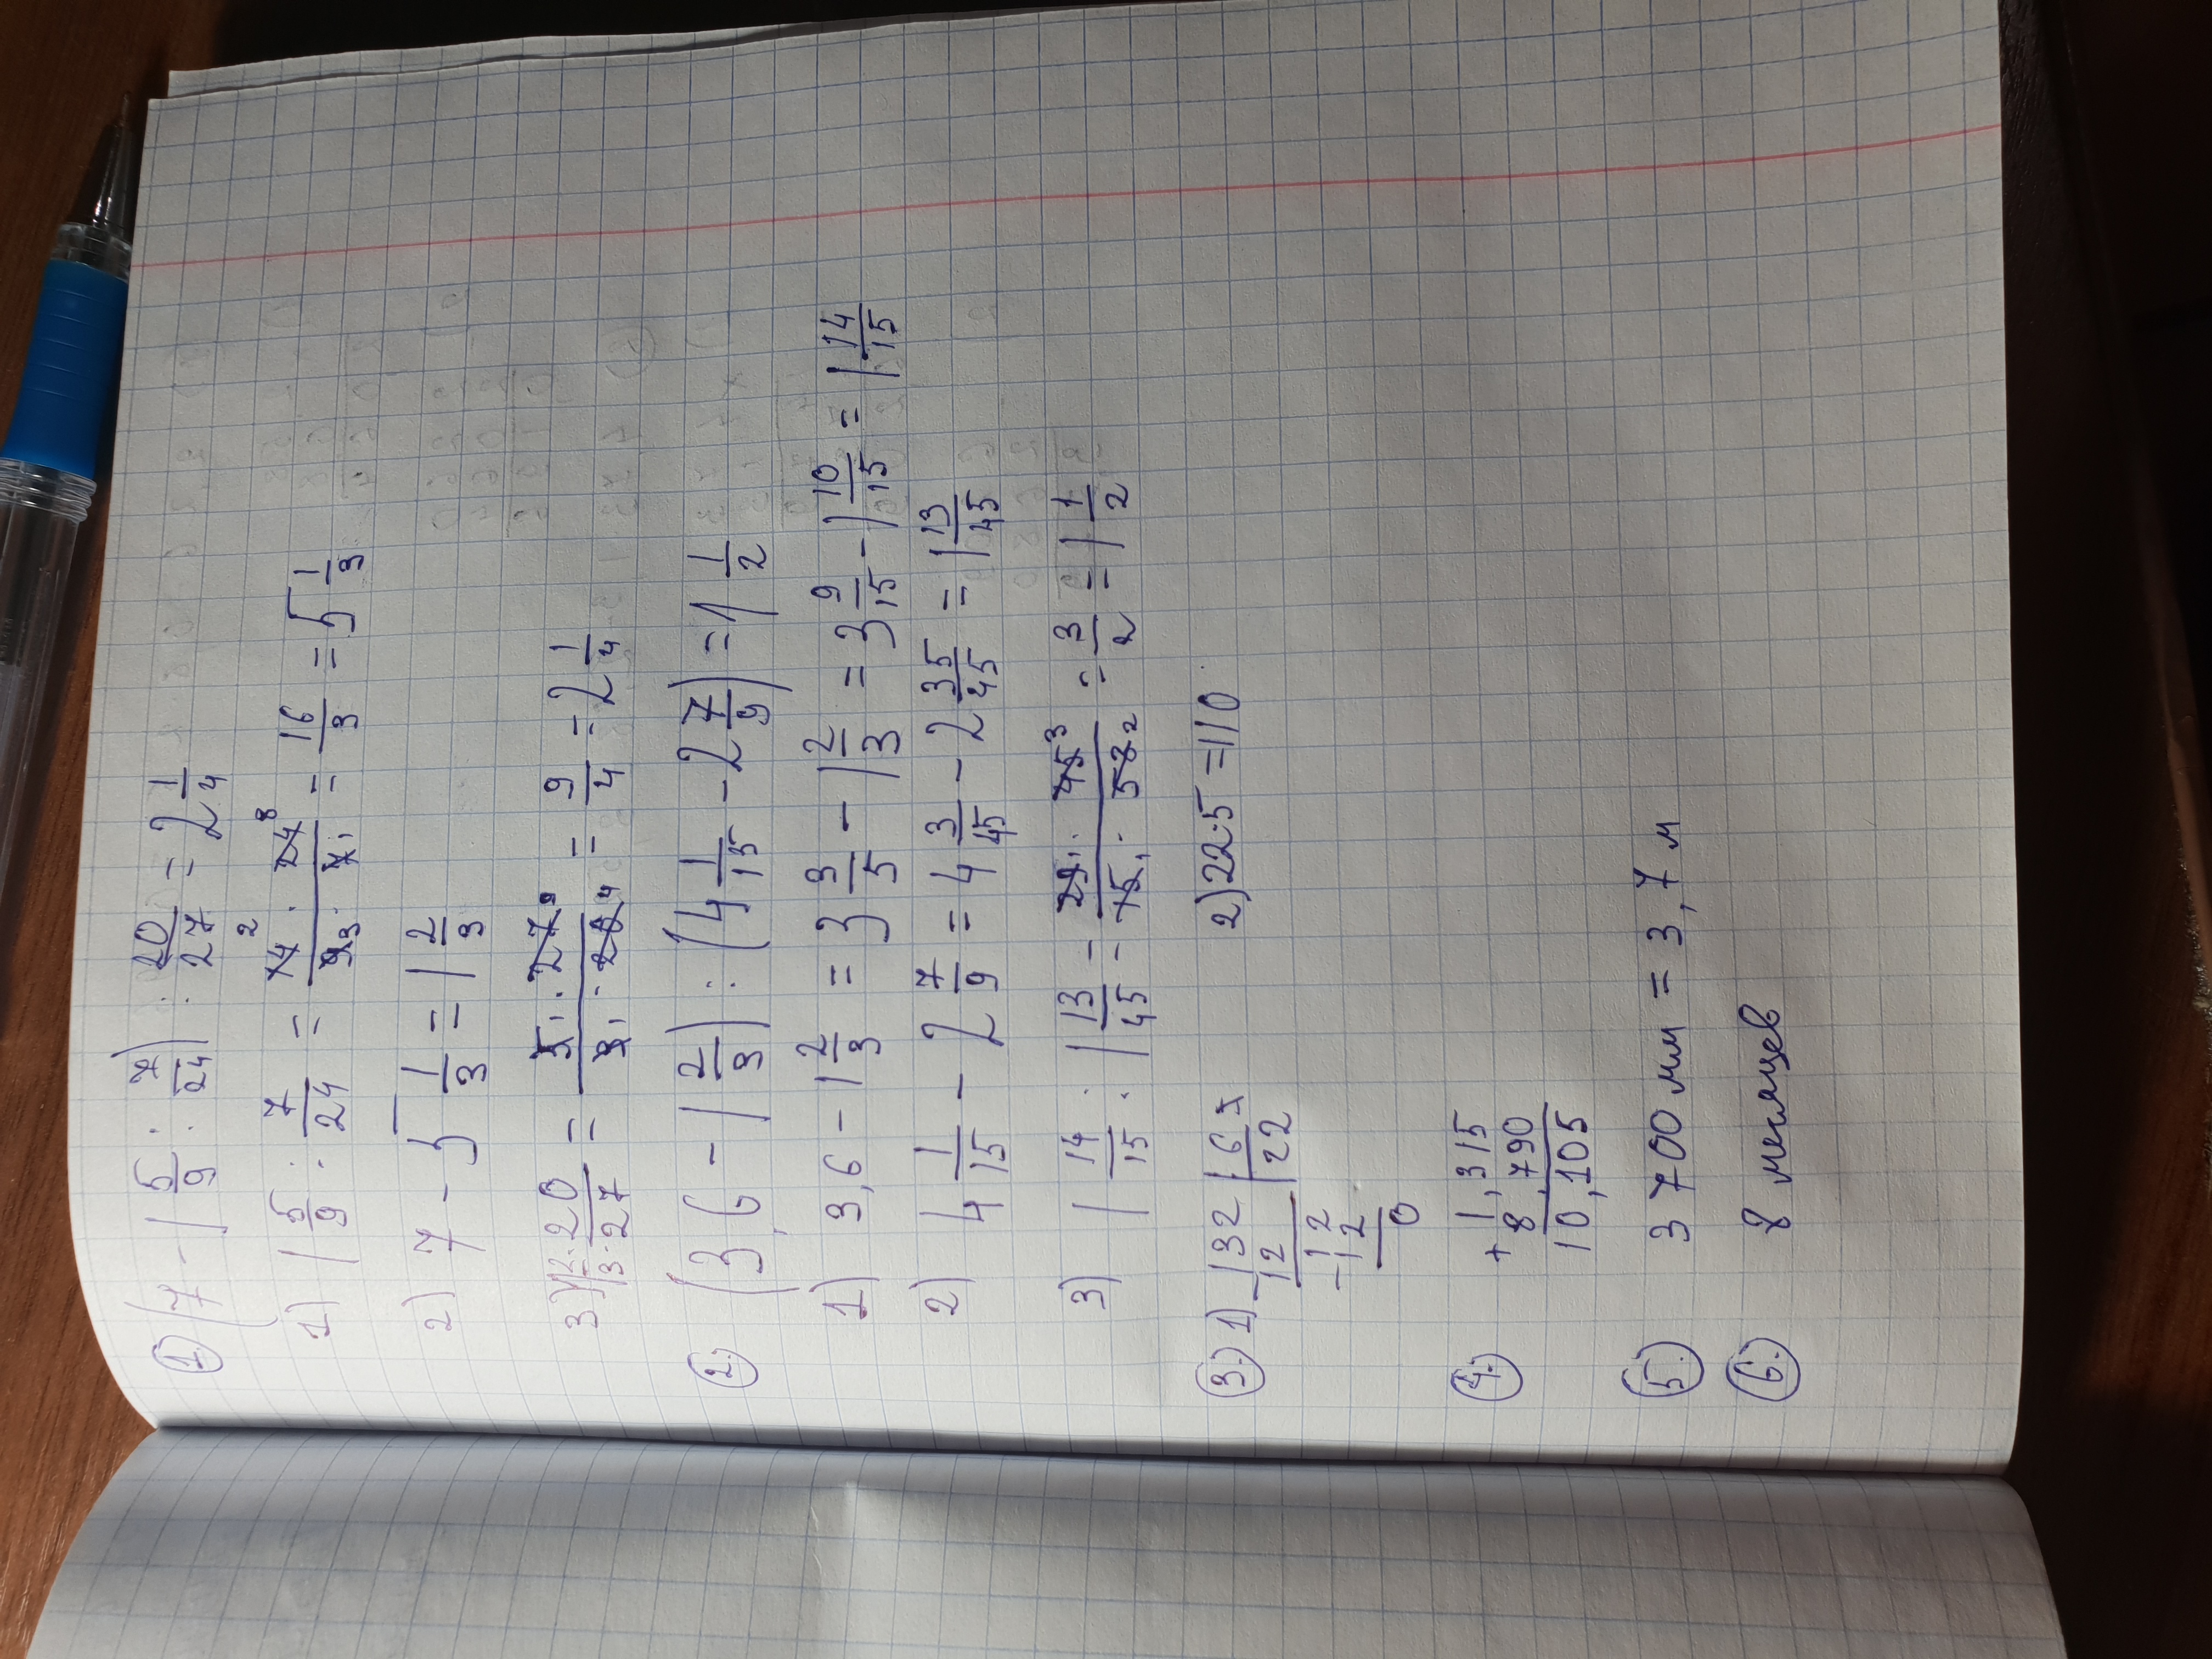 1. (7 - 1 5/9 : 7/24) : 20/27 = 2 1/4
1) 1 5/9 : 7/24 = 14 2 · 24 8 / 9 3 · 7 1 = 16/3 = 5 1/3
2) 7 - 5 1/3 = 1 2/3
3) 1 2/3 : 20/27 = 5 1 · 27 9 / 3 1 · 20 4 = 9/4 = 2 1/4
2. (3,6 - 1 2/3) : (4 1/15 - 2 7/9) = 1 1/2
1) 3,6 - 1 2/3 = 3 3/5 - 1 2/3 = 3 9/15 - 1 10/15 = 1 14/15
2) 4 1/15 - 2 7/9 = 4 3/45 - 2 35/45 = 1 13/45
3) 1 14/15 : 1 13/45 = 29 1 · 45 3 / 15 1 · 58 2 = 3/2 = 1 1/2
3. 1) - 132 | 6 2) 22·5 = 110
12 22
- 12
12
0
4. + 1,315
8,790
10,105
5. 3700 мм = 3,7 м
6. 8 месяцев